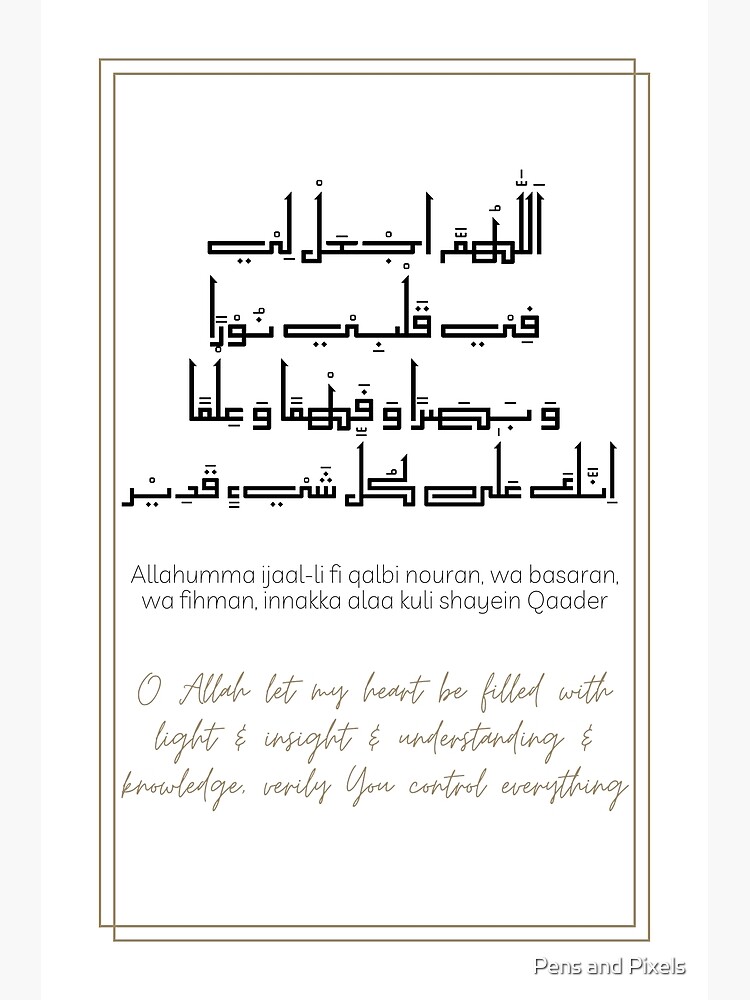 اَللّٰهُمَّ اجْعَلْ لِيْ
فِيْ قَلْبِيْ نُوْرًا
وَ بَصَرًا وَ فَهْمًا وَ عِلْمًا
اِنَّكَ عَلٰى كُلِّ شَيْءٍ قَدِيْر
Allahumma ijaal-li fi qalbi nouran, wa basaran,
wa fihman, innakka alaa kuli shayein Qaader
O Allah let my heart be filled with
light & insight & understanding &
knowledge, verily You control everything
Pens and Pixels